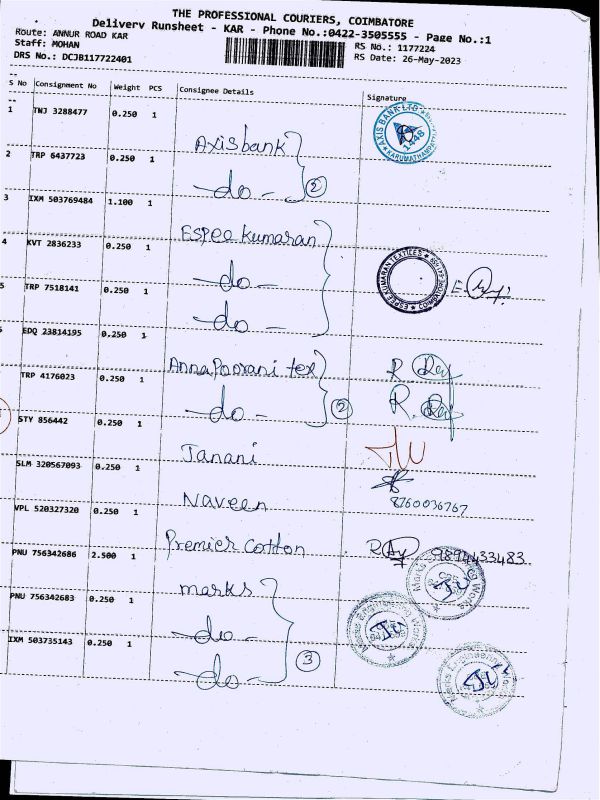 THE PROFESSIONAL COURIERS, COIMBATORE
Delivery Runsheet - KAR - Phone No.:0422-3505555 - Page No.:1
Route: ANNUR ROAD KAR
Staff: MOHAN
DRS No.: DCJB117722401
RS No.: 1177224
RS Date: 26-May-2023
S No Consignment No Weight PCS Consignee Details Signature
1 TNJ 3288477 0.250 1 Axisbank
AXIS BANK LTD 1448
2 TRP 6437723 0.250 1 -do- 2
3 IXM 503769484 1.100 1 Espee kumaran
4 KVT 2836233 0.250 1 -do-
ESPEE KUMARAN TEXTILES
5 TRP 7518141 0.250 1 -do-
EDQ 23814195 0.250 1 Annapoorani tex
TRP 4176023 0.250 1 -do- 2
STY 856442 0.250 1 Janani
SLM 320567093 0.250 1 Naveen 8760036767
VPL 520327320 0.250 1 Premier cotton 9894433483
PNU 756342686 2.500 1 marks
PNU 756342683 0.250 1 -do-
IXM 503735143 0.250 1 -do- 3